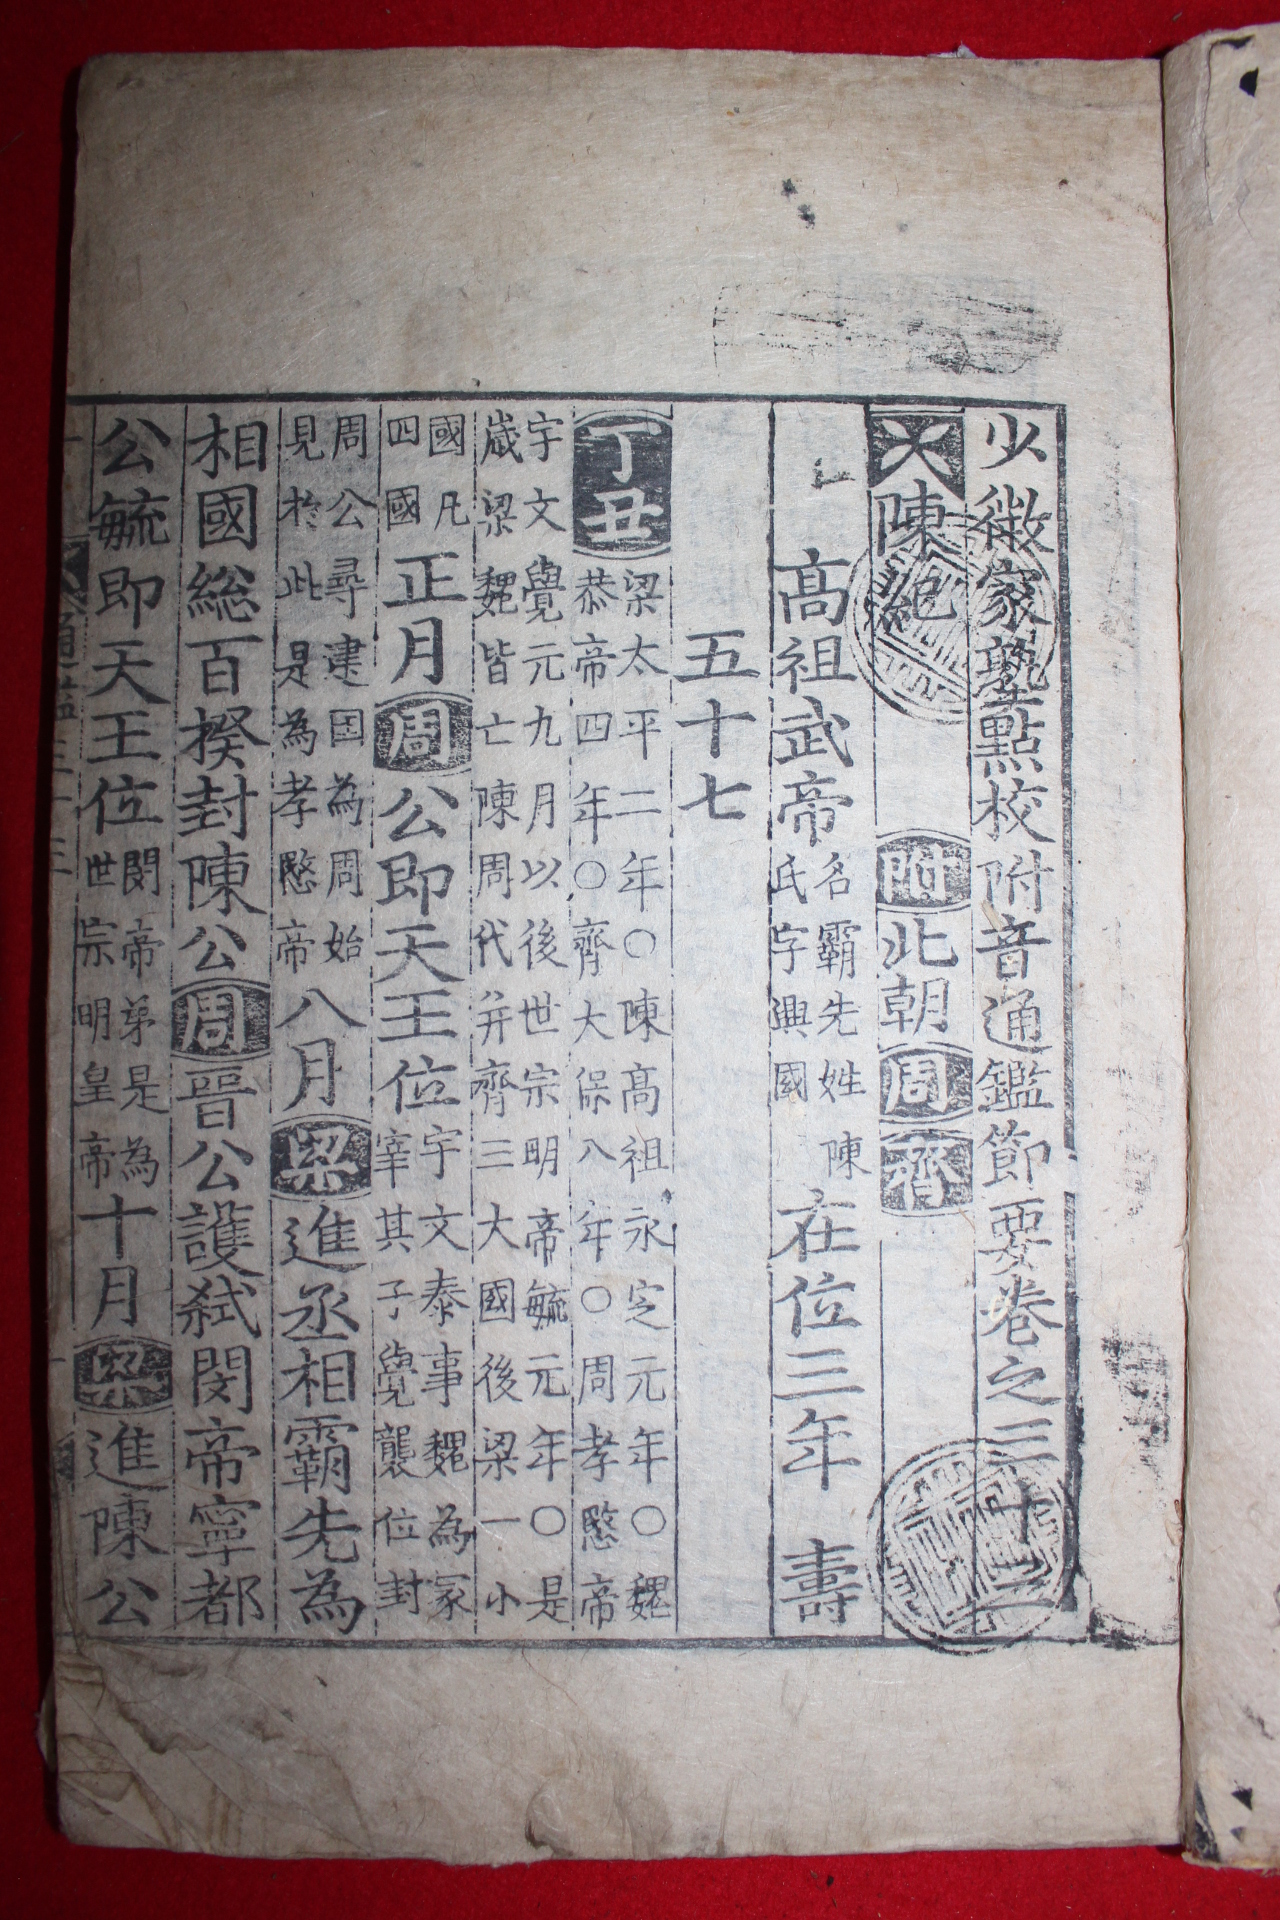 少微家塾點校附音通鑑節要卷之三十三
陳紀 附北朝周齊
高祖武帝 名霸先姓陳氏字興國 在位三年 壽
五十七
丁丑 梁太平二年○陳高祖永定元年○魏恭帝四年○齊大保八年○周孝愍帝
宇文覺元九月以後世宗明帝毓元年○是歲梁魏皆亡陳周代并齊三大國後梁一小
國凡四國 正月周公即天王位 宇文泰事魏為冢宰其子覺襲位封
周公尋建国為周始見於此是為孝愍帝 八月梁進丞相霸先為
相國総百揆封陳公周晉公護弑閔帝寧都
公毓即天王位 閔帝弟是為世宗明皇帝 十月梁進陳公